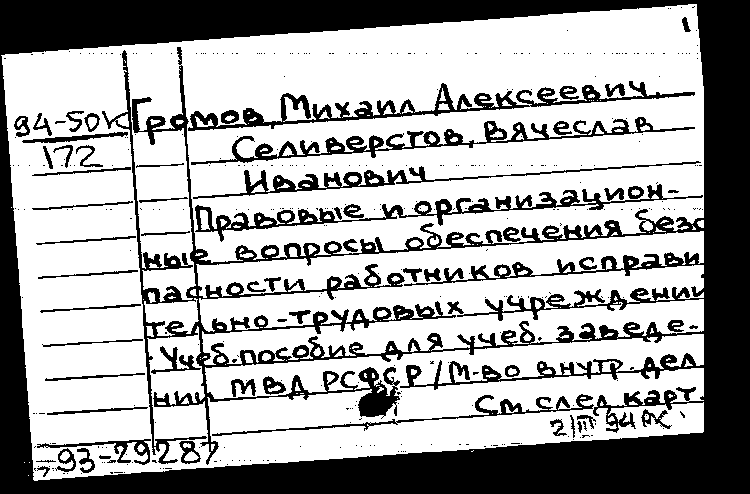 1
94-50К Громов, Михаил Алексеевич.
172 Селиверстов, Вячеслав
Иванович
Правовые и организацион-
ные вопросы обеспечения безо
пасности работников исправи
тельно-трудовых учреждений
: Учеб. пособие для учеб. заведе-
ний МВД РСФСР / М-во внутр. дел
См. след. карт.
2 III 94
93-29287